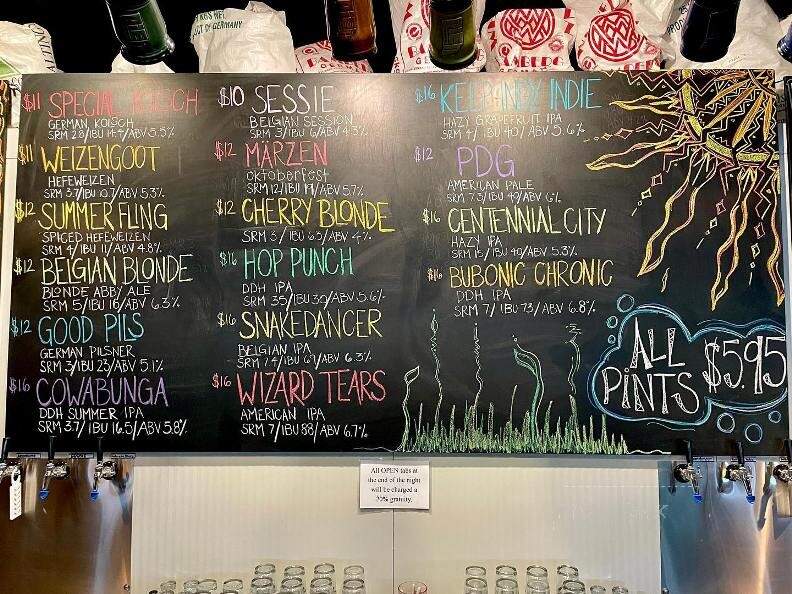 $11 SPECIAL KOLSCH
GERMAN KOLSCH
SRM 2.8/IBU 14.4/ABV 5.5%
$11 WEIZENGOOT
HEFEWEIZEN
SRM 3.7/IBU 10.7/ABV 5.3%
$12 SUMMER FLING
SPICED HEFEWEIZEN
SRM 4/IBU 11/ABV 4.8%
$12 BELGIAN BLONDE
BLONDE ABBY ALE
SRM 5/IBU 16/ABV 6.3%
$12 GOOD PILS
GERMAN PILSNER
SRM 3/IBU 23/ABV 5.1%
$16 COWABUNGA
DDH SUMMER IPA
SRM 3.7/IBU 16.5/ABV 5.8%
$10 SESSIE
BELGIAN SESSION
SRM 3/IBU 6/ABV 4.3%
$12 MÄRZEN
Oktoberfest
SRM 12/IBU 19/ABV 5.7%
$12 CHERRY BLONDE
SRM 3/IBU 6.5/ABV 4%
$16 HOP PUNCH
DDH IPA
SRM 3.5/IBU 30/ABV 5.6%
$16 SNAKEDANCER
BELGIAN IPA
SRM 7.4/IBU 69/ABV 6.3%
$16 WIZARD TEARS
AMERICAN IPA
SRM 7/IBU 88/ABV 6.7%
$16 INDIE
HAZY GRAPEFRUIT IPA
SRM 4/IBU 40/ABV 5.6%
$12 PDG
AMERICAN PALE
SRM 7.3/IBU 49/ABV 6%
$16 CENTENNIAL CITY
HAZY IPA
SRM 15/IBU 40/ABV 5.3%
$16 BUBONIC CHRONIC
DDH IPA
SRM 7/IBU 73/ABV 6.8%
ALL PINTS $5.95
All OPEN tabs at
the end of the night
will be charged a
20% gratuity.